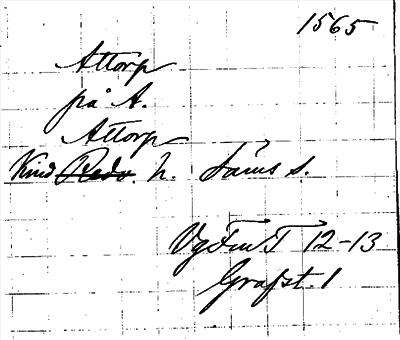 1565
Attorp
på A.
Attorp
Kind Redv. h. Länis s.
VgFmT 12-13
Grafst. 1